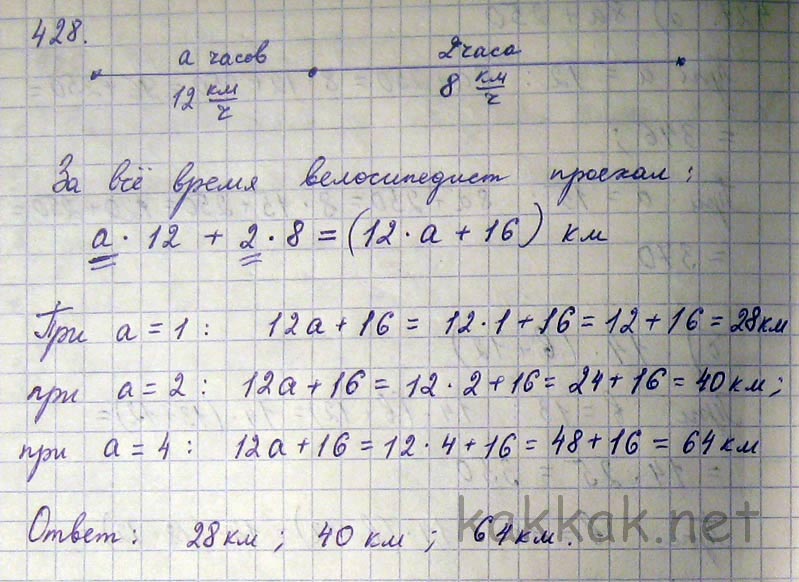 428.
а часов 2 часа
12 км/ч 8 км/ч
За всё время велосипедист проехал:
а · 12 + 2 · 8 = (12 · а + 16) км
При а = 1 : 12а + 16 = 12 · 1 + 16 = 12 + 16 = 28 км
при а = 2 : 12а + 16 = 12 · 2 + 16 = 24 + 16 = 40 км ;
при а = 4 : 12а + 16 = 12 · 4 + 16 = 48 + 16 = 64 км
Ответ : 28 км ; 40 км ; 64 км .
kakkak.net